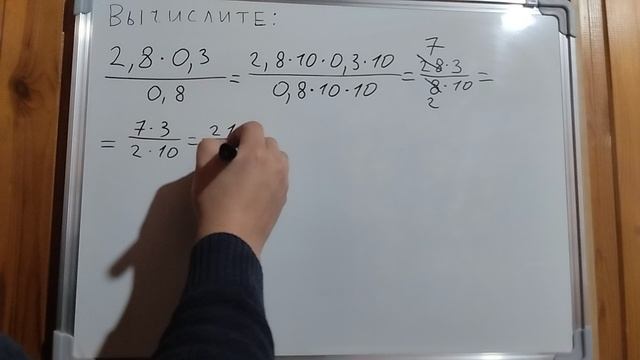 Вычислите:
2,8·0,3 / 0,8 = 2,8·10·0,3·10 / 0,8·10·10 = 7 28·3 / 8·10 2 =
= 7·3 / 2·10 = 21